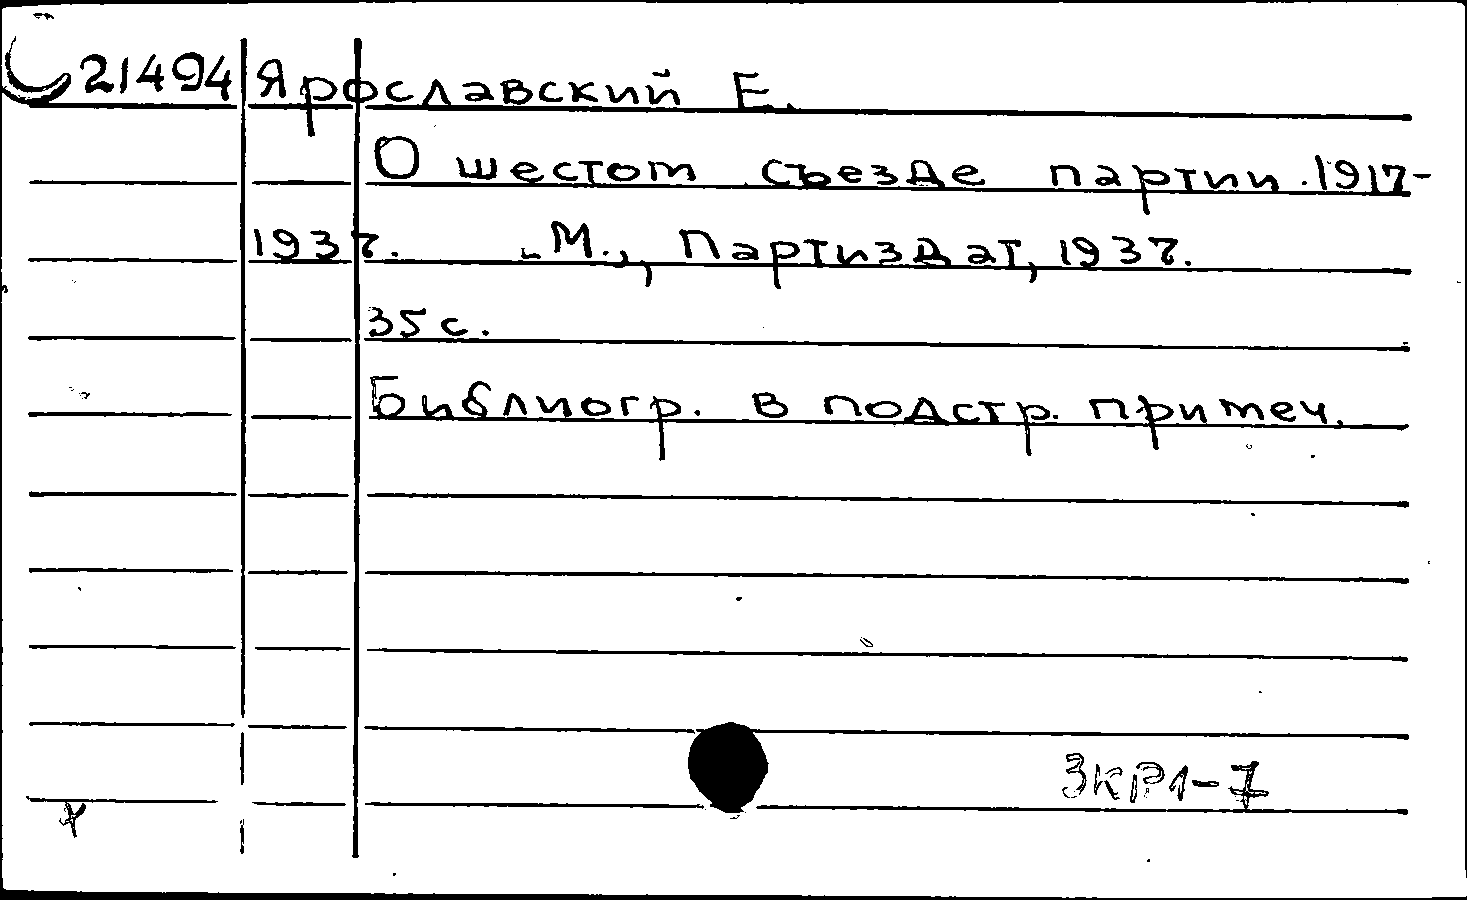 21494 Ярославский Е.
О шестом съезде партии. 1917-
1937. М., Партиздат, 1937.
35 с.
Библиогр. в подстр. примеч.
3КР1-7